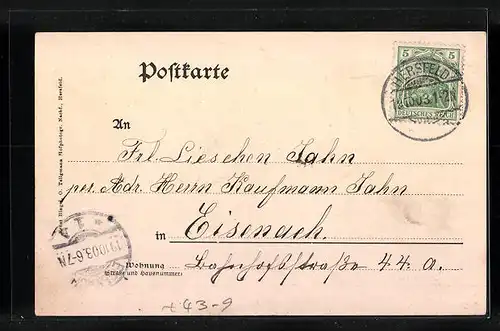 Postkarte
5 5
HERSFELD
DEUTSCHES REICH
An
Frl. Lieschen Jahn
per Adr. Herrn Kaufmann Jahn
in Eisenach.
Wohnung
(Straße und Hausnummer)
Bahnhofstraße 44 a.
19.10.03.6-7N
+43-9